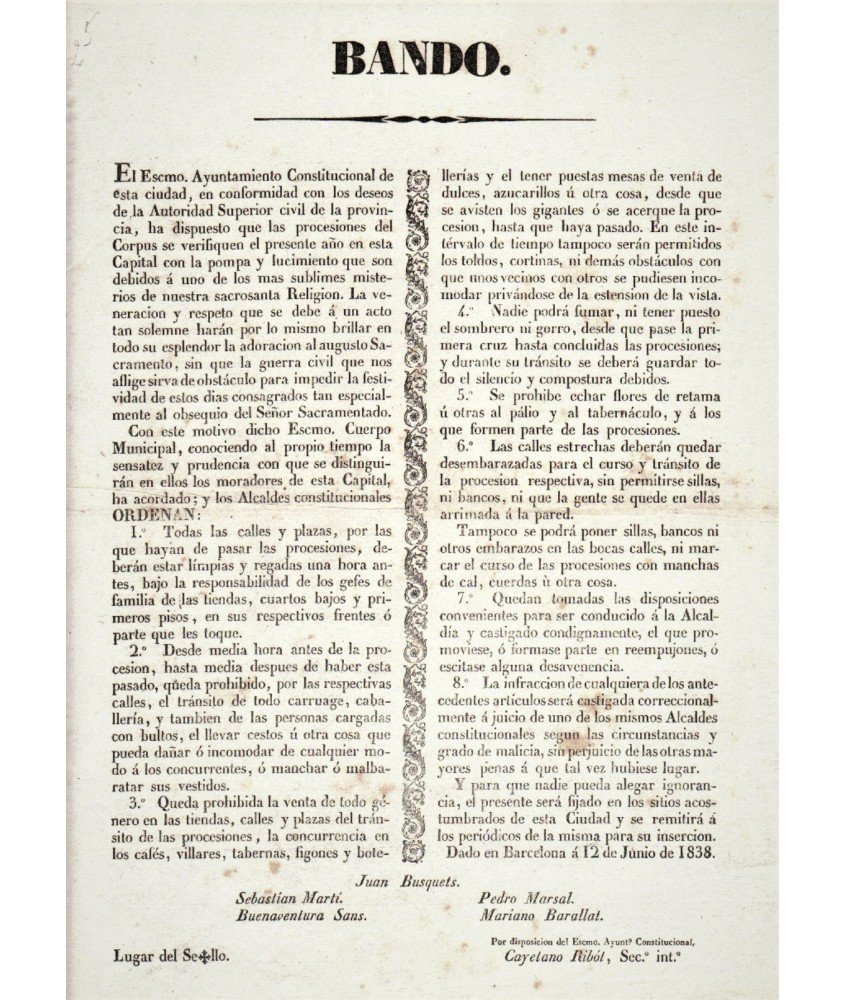 BANDO.
El Escmo. Ayuntamiento Constitucional de
esta ciudad, en conformidad con los deseos
de la Autoridad Superior civil de la provin-
cia, ha dispuesto que las procesiones del
Corpus se verifiquen el presente año en esta
Capital con la pompa y lucimiento que son
debidos á uno de los mas sublimes miste-
rios de nuestra sacrosanta Religion. La ve-
neracion y respeto que se debe á un acto
tan solemne harán por lo mismo brillar en
todo su esplendor la adoracion al augusto Sa-
cramento, sin que la guerra civil que nos
aflige sirva de obstáculo para impedir la festi-
vidad de estos dias consagrados tan especial-
mente al obsequio del Señor Sacramentado.
Con este motivo dicho Escmo. Cuerpo
Municipal, conociendo al propio tiempo la
sensatez y prudencia con que se distingui-
rán en ellos los moradores de esta Capital,
ha acordado; y los Alcaldes constitucionales
ORDENAN:
1.º Todas las calles y plazas, por las
que hayan de pasar las procesiones, de-
berán estar limpias y regadas una hora an-
tes, bajo la responsabilidad de los gefes de
familia de las tiendas, cuartos bajos y pri-
meros pisos, en sus respectivos frentes ó
parte que les toque.
2.º Desde media hora antes de la pro-
cesion, hasta media despues de haber esta
pasado, queda prohibido, por las respectivas
calles, el tránsito de todo carruage, caba-
llería, y tambien de las personas cargadas
con bultos, el llevar cestos ú otra cosa que
pueda dañar ó incomodar de cualquier mo-
do á los concurrentes, ó manchar ó malba-
ratar sus vestidos.
3.º Queda prohibida la venta de todo gé-
nero en las tiendas, calles y plazas del trán-
sito de las procesiones, la concurrencia en
los cafés, villares, tabernas, figones y bote-
llerías y el tener puestas mesas de venta de
dulces, azucarillos ú otra cosa, desde que
se avisten los gigantes ó se acerque la pro-
cesion, hasta que haya pasado. En este in-
térvalo de tiempo tampoco serán permitidos
los toldos, cortinas, ni demás obstáculos con
que unos vecinos con otros se pudiesen inco-
modar privándose de la estension de la vista.
4.º Nadie podrá fumar, ni tener puesto
el sombrero ni gorro, desde que pase la pri-
mera cruz hasta concluidas las procesiones;
y durante su tránsito se deberá guardar to-
do el silencio y compostura debidos.
5.º Se prohibe echar flores de retama
ú otras al pálio y al tabernáculo, y á los
que formen parte de las procesiones.
6.º Las calles estrechas deberán quedar
desembarazadas para el curso y tránsito de
la procesion respectiva, sin permitirse sillas,
ni bancos, ni que la gente se quede en ellas
arrimada á la pared.
Tampoco se podrá poner sillas, bancos ni
otros embarazos en las bocas calles, ni mar-
car el curso de las procesiones con manchas
de cal, cuerdas ù otra cosa.
7.º Quedan tomadas las disposiciones
convenientes para ser conducido á la Alcal-
día y castigado condignamente, el que pro-
moviese, ó formase parte en reempujones, ó
escitase alguna desavenencia.
8.º La infraccion de cualquiera de los ante-
cedentes artículos será castigada correccional-
mente á juicio de uno de los mismos Alcaldes
constitucionales segun las circunstancias y
grado de malicia, sin perjuicio de las otras ma-
yores penas á que tal vez hubiese lugar.
Y para que nadie pueda alegar ignoran-
cia, el presente será fijado en los sitios acos-
tumbrados de esta Ciudad y se remitirá á
los periódicos de la misma para su insercion.
Dado en Barcelona á 12 de Junio de 1838.
Juan Busquets.
Sebastian Martí. Pedro Marsal.
Buenaventura Sans. Mariano Barallat.
Por disposicion del Escmo. Ayuntº Constitucional,
Lugar del Se✠llo. Cayetano Riból, Sec.º int.º